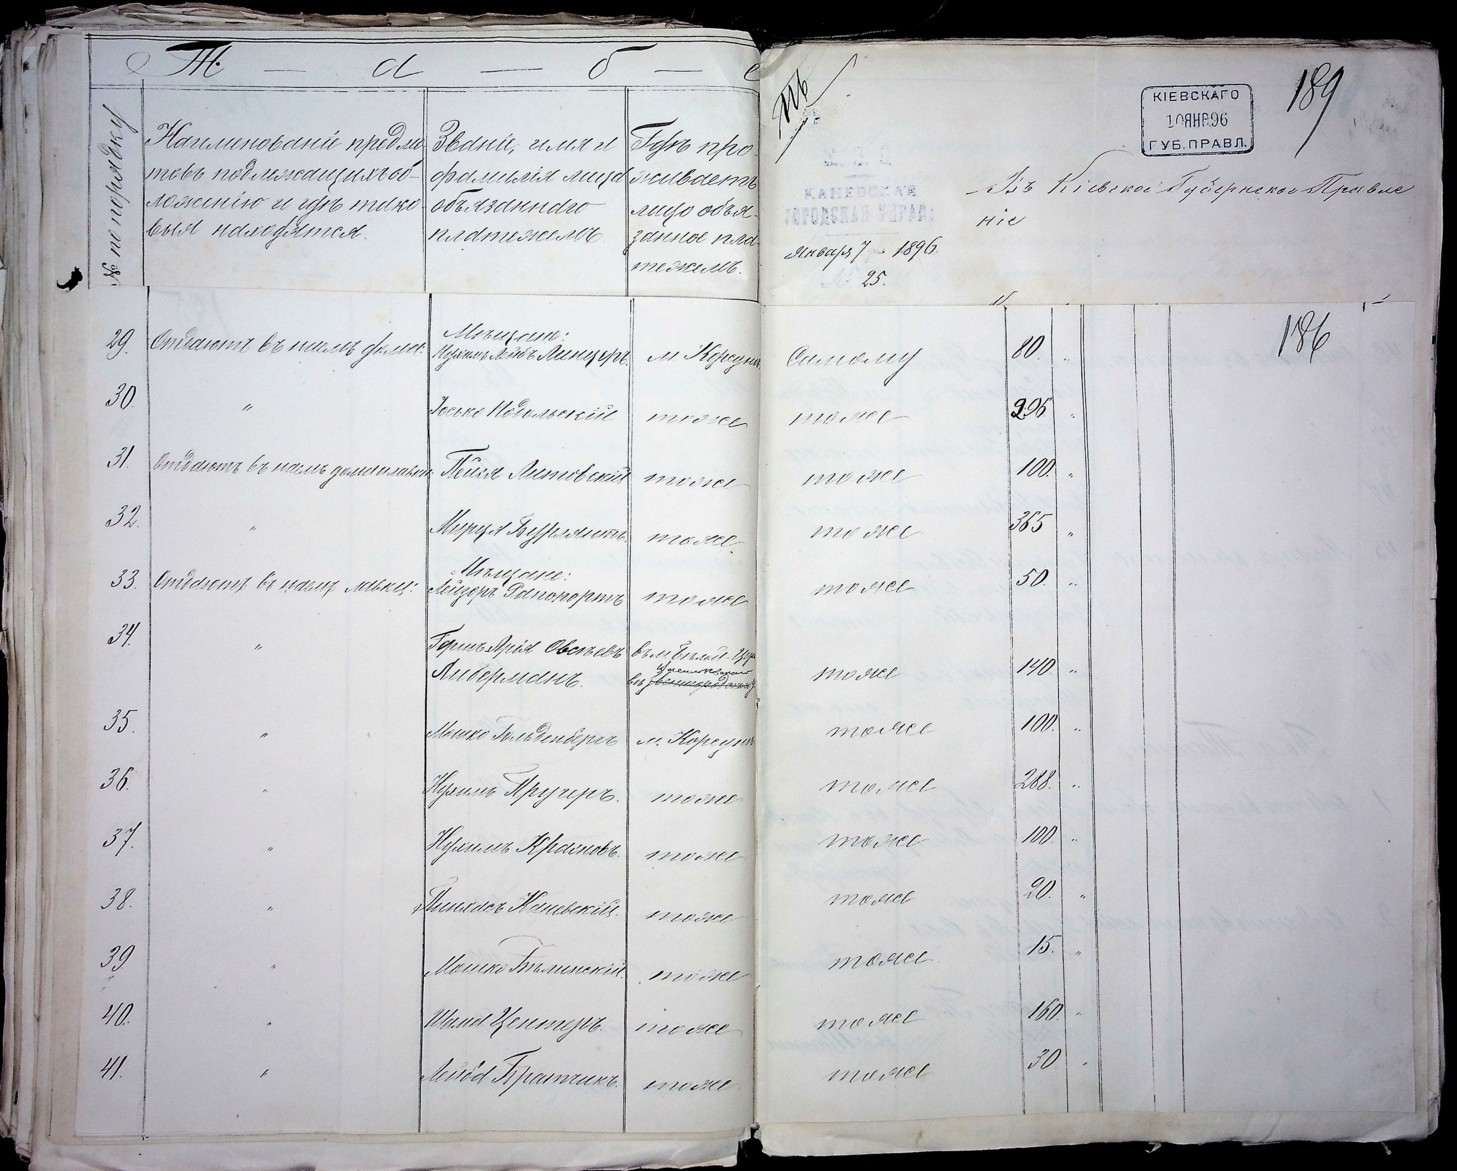 Т — а — б — е
№ по порядку
Наименованіе предме-
товъ подлежащихъ об-
ложенію и гдѣ тако-
выя находятся.
Званіе, имя и
фамилія лица
обязаннаго
платежемъ.
Гдѣ про-
живаетъ
лицо обя-
занное пла-
тежемъ.
189
КІЕВСКАГО
10 ЯНВ 96
ГУБ. ПРАВЛ.
КАНЕВСКАЯ
ГОРОДСКАЯ УПРАВА
Января 7 1896
25.
Въ Кіевское Губернское Правле
ніе
186
29. Отдаютъ въ наемъ дома: Мѣщане: Нухимъ Лейбъ Линцеръ. м. Корсунь Самому 80. "
30. " Іосько Подольскій тоже тоже 296 "
31. Отдаютъ въ наемъ дома и лавки Литовскій тоже тоже 100. "
32. " тоже. тоже 365 "
33. Отдаютъ въ наемъ лавки: Мѣщане: Лейзеръ Рапопортъ тоже тоже 50. "
34. " Гершъ Арія Овсѣевъ Либерманъ. тоже 140. "
35. " Мошко Гольденбергъ м. Корсунь тоже 100. "
36. " Нухимъ Пругеръ. тоже тоже 288. "
37. " Нухимъ Красновъ. тоже тоже 100. "
38. " Пинхасъ Каневскій. тоже тоже 20. "
39 " Мошко Бѣлинскій. тоже тоже 15. "
40. " Шмилъ Центеръ тоже тоже 160. "
41. " Лейба Братчикъ. тоже тоже 30 "